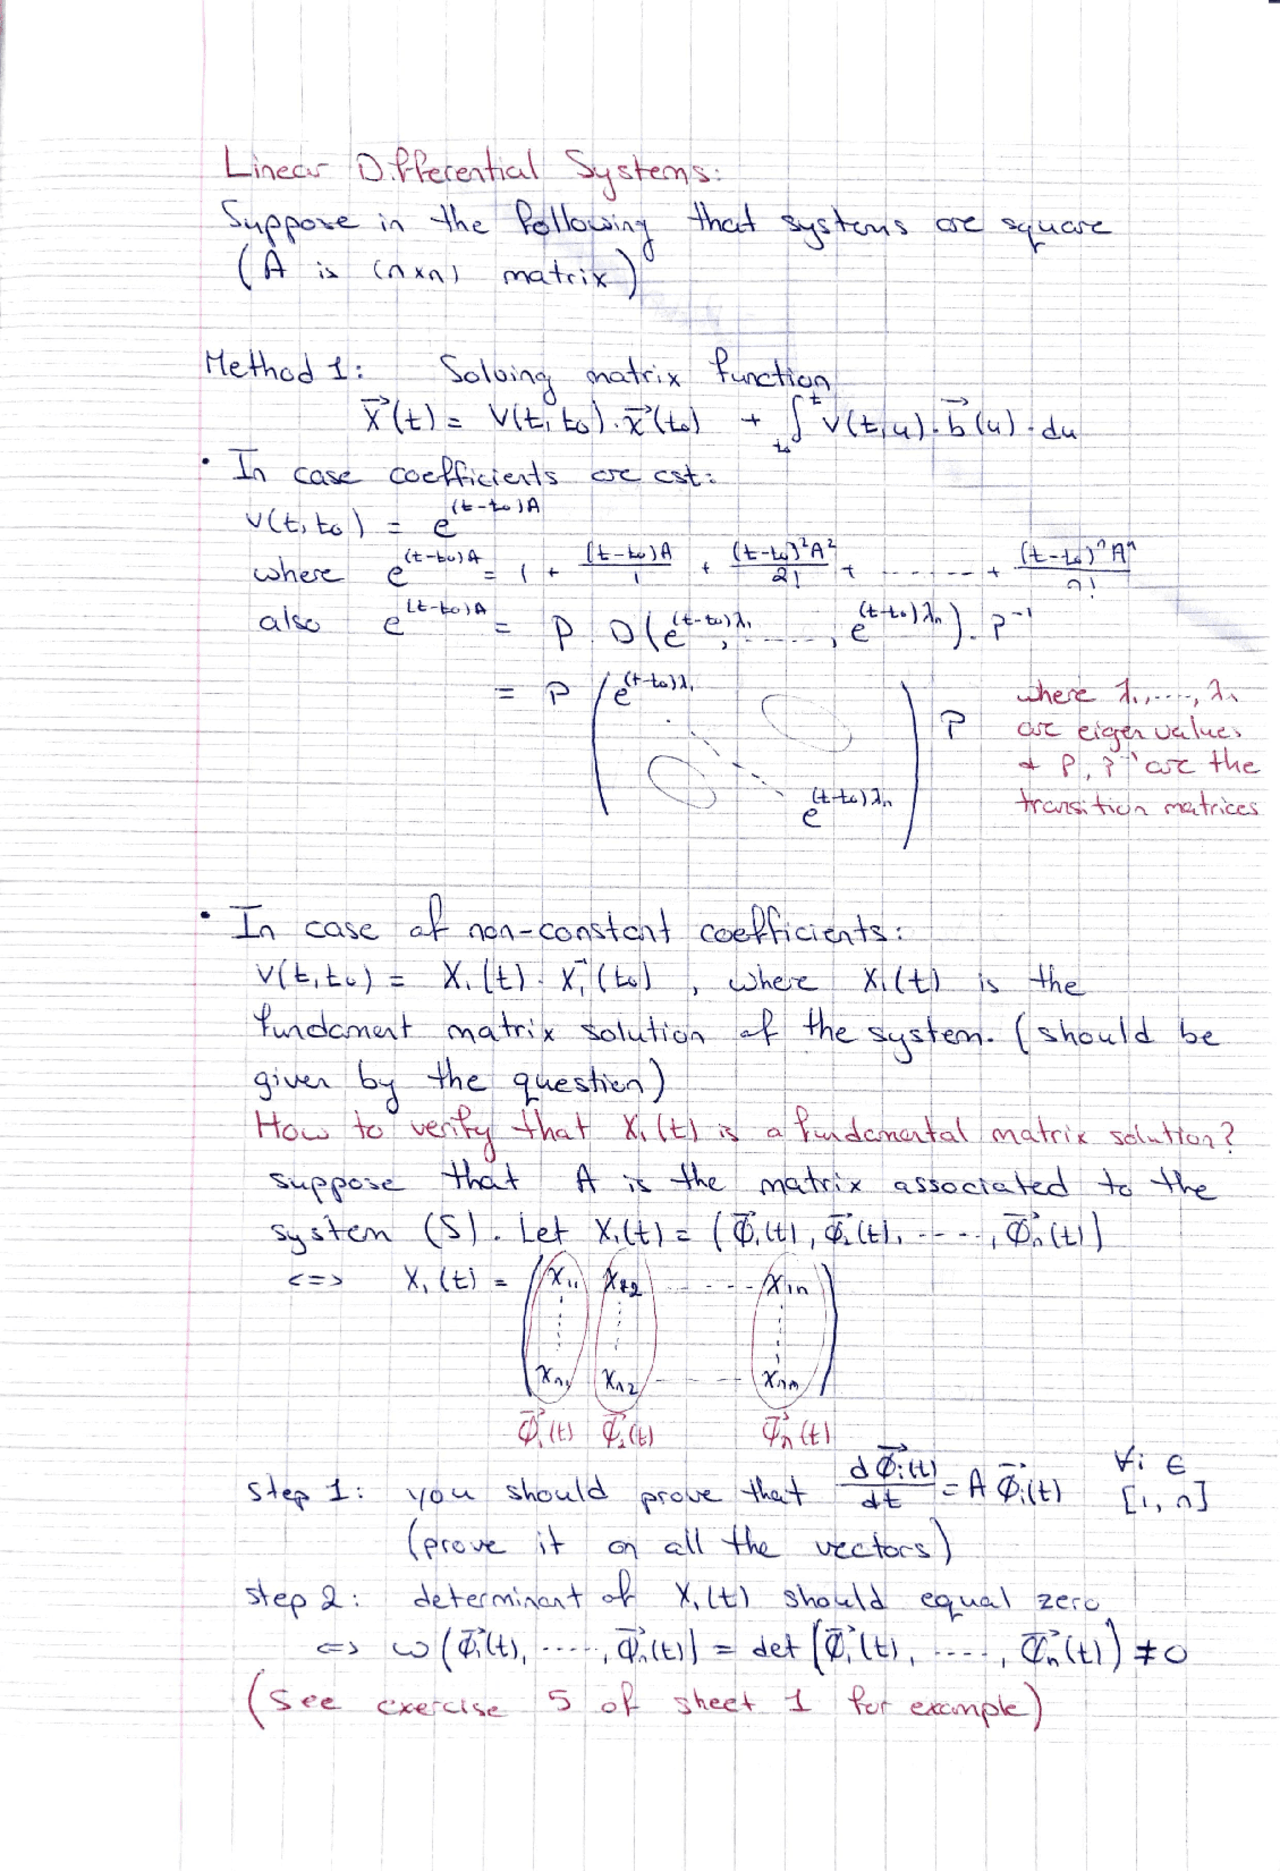 Linear Differential Systems:
Suppose in the following that systems are square
(A is (n×n) matrix)
Method 1: Solving matrix function
x⃗(t) = V(t, t₀). x⃗(t₀) + ∫ₜ₀ᵗ V(t,u). b⃗(u). du
• In case coefficients are cst:
V(t, t₀) = e^{(t-t₀)A}
where e^{(t-t₀)A} = 1 + (t-t₀)A/1 + (t-t₀)²A²/2! + ....... + (t-t₀)ⁿAⁿ/n!
also e^{(t-t₀)A} = P D(e^{(t-t₀)λ₁}, ......, e^{(t-t₀)λₙ}). P⁻¹
= P ( e^{(t-t₀)λ₁} ⋱ e^{(t-t₀)λₙ} ) P
where λ₁,....,λₙ
are eigen values
& P, P⁻¹ are the
transition matrices
• In case of non-constant coefficients:
V(t, t₀) = X₁(t). X₁⁻¹(t₀) , where X₁(t) is the
fundament matrix solution of the system. (should be
given by the question)
How to verify that X₁(t) is a fundamental matrix solution?
suppose that A is the matrix associated to the
system (S). Let X₁(t) = (Φ⃗₁(t), Φ⃗₂(t), ----, Φ⃗ₙ(t))
<=> X₁(t) = ( x₁₁ x₁₂ ----- x₁ₙ
xₙ₁ xₙ₂ ----- xₙₙ )
Φ⃗₁(t) Φ⃗₂(t) Φ⃗ₙ(t)
step 1: you should prove that dΦ⃗ᵢ(t)/dt = A Φ⃗ᵢ(t) ∀i ∈ [1, n]
(prove it on all the vectors)
step 2: determinant of X₁(t) should equal zero
<=> ω(Φ⃗₁(t), ....., Φ⃗ₙ(t)) = det(Φ⃗₁(t), ----, Φ⃗ₙ(t)) ≠ 0
(See exercise 5 of sheet 1 for example)